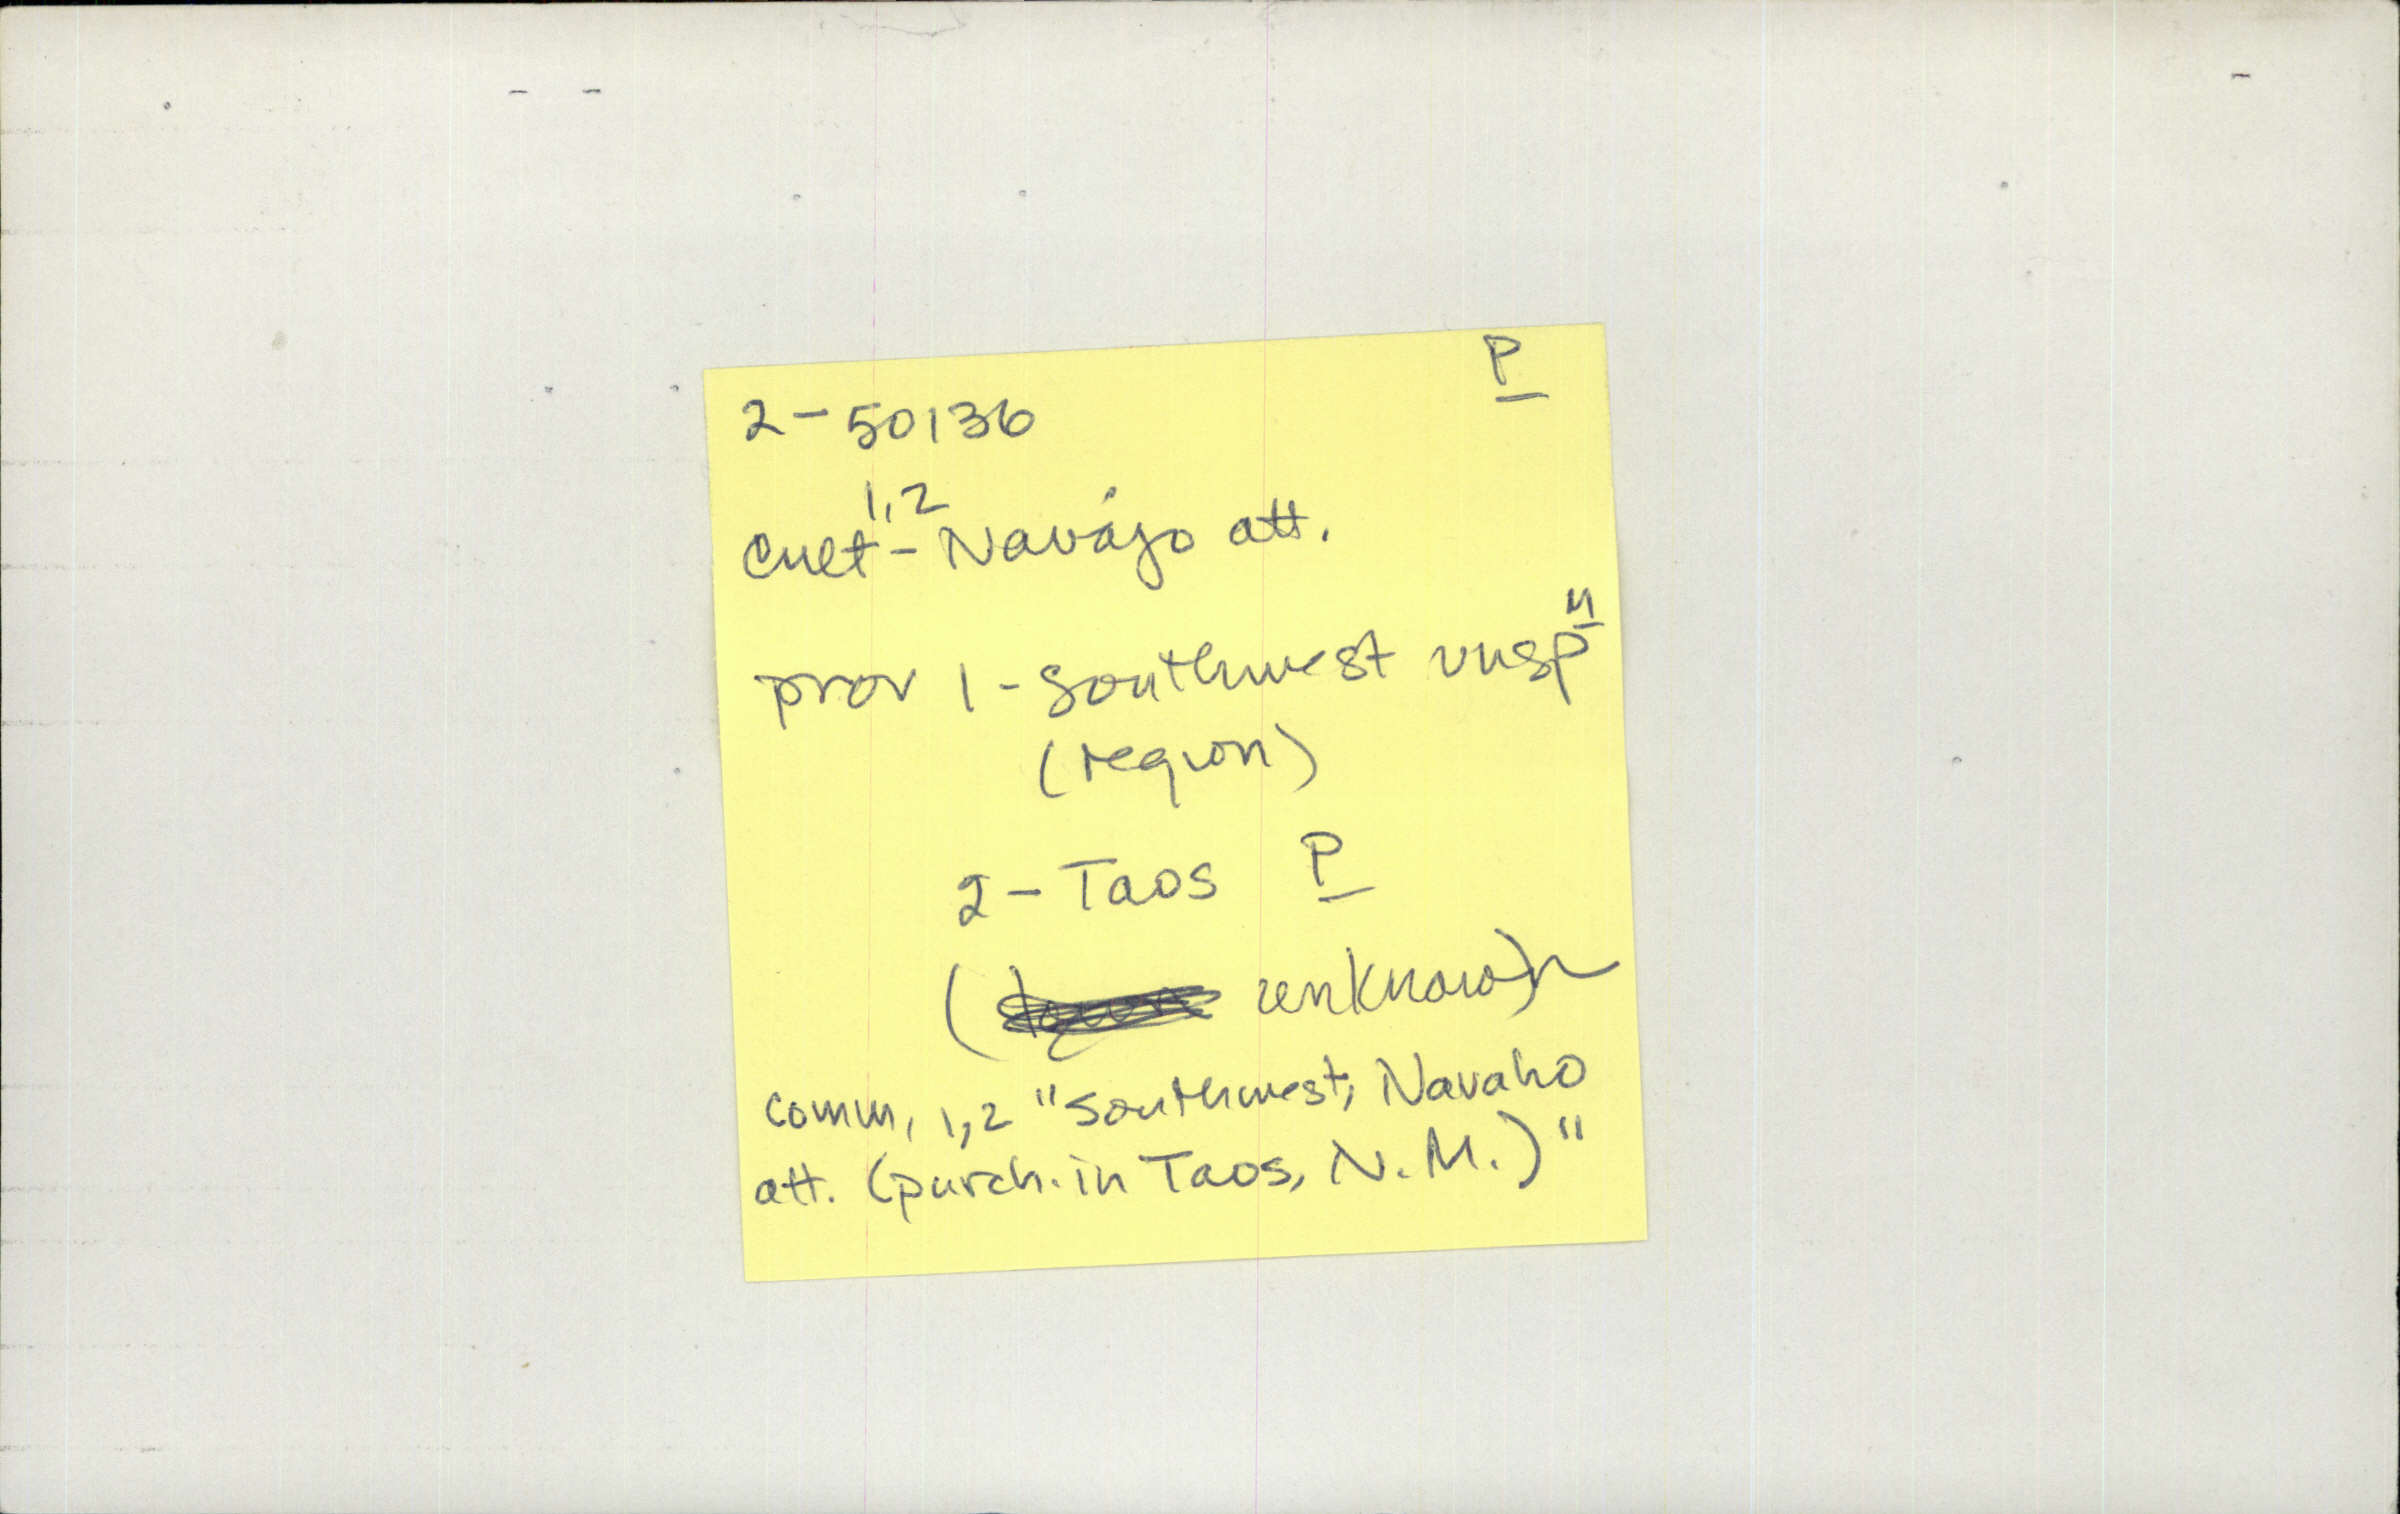 P
2-50136
1,2
Cult - Navajo att.
M
prov 1 - Southwest unsp
(region)
2 - Taos P
( unknown)
comm, 1,2 "Southwest, Navaho
att. (purch. in Taos, N.M.)"